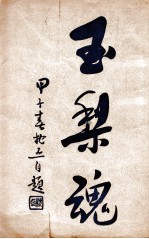 玉梨魂
甲子春枕亞自題